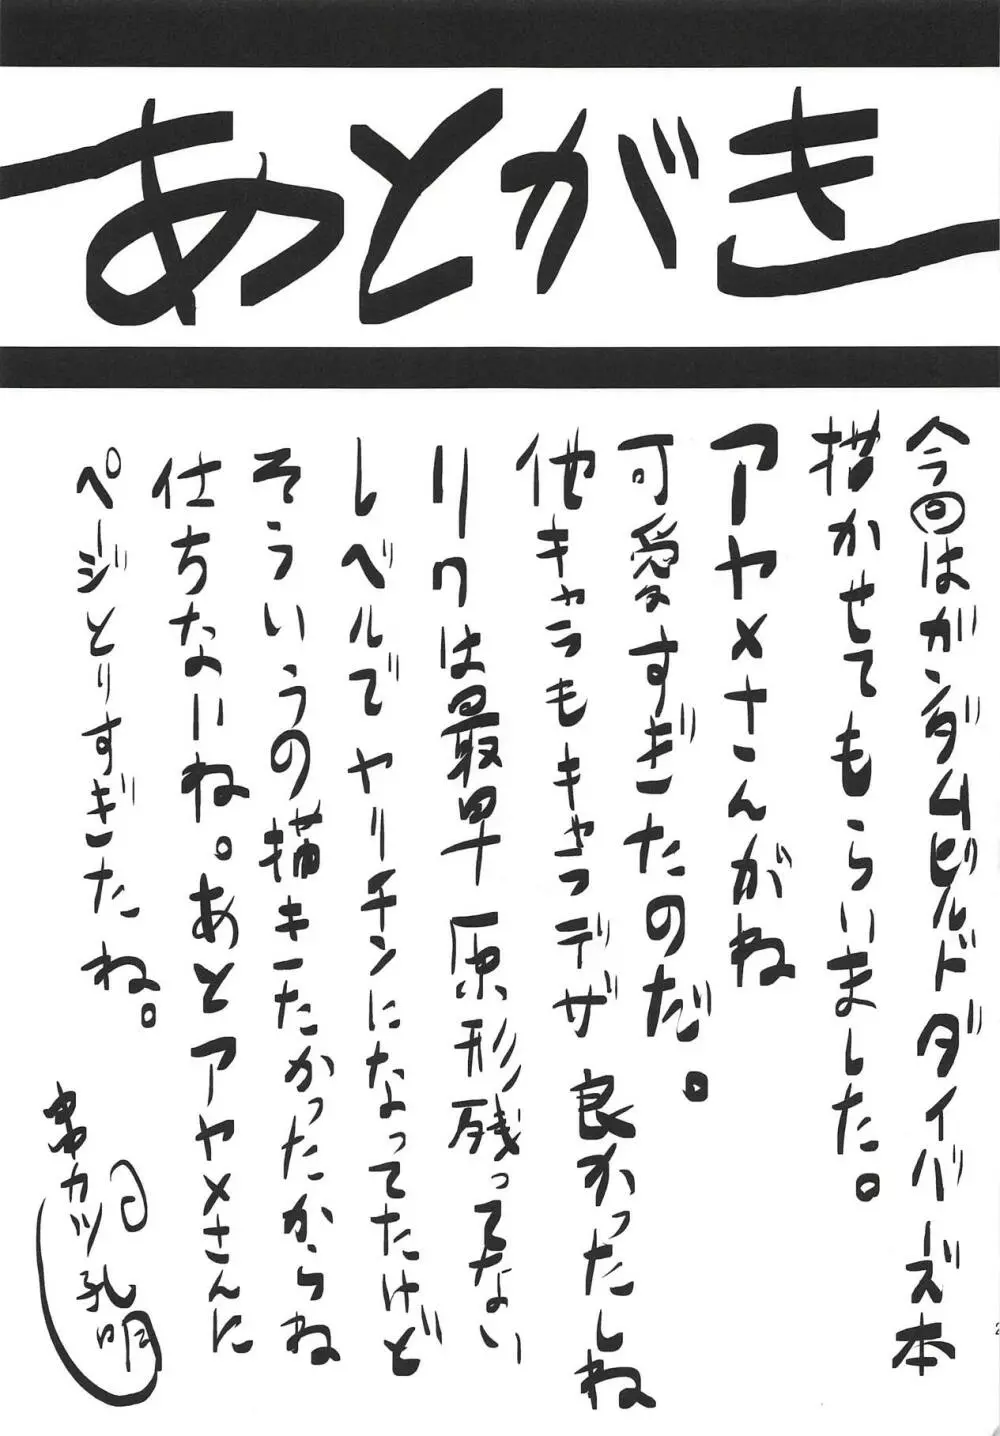 あとがき
今回はガンダムビルドダイバーズ本
描かせてもらいました。
アヤメさんがね
可愛すぎたのだ。
他キャラもキャラデザ良かったしね
リクは最早原形残ってない
レベルでヤリチンになってたけど
そういうの描きたかったからね
仕ちないね。あとアヤメさんに
ページとりすぎたね。
串カツ孔明
2